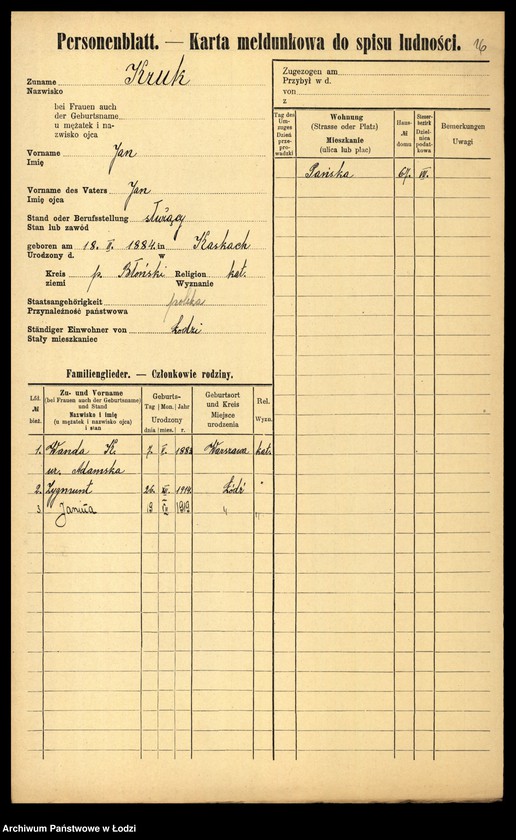 Personenblatt. — Karta meldunkowa do spisu ludności. 16
Zuname Kruk
Nazwisko
bei Frauen auch
der Geburtsname
u mężatek i na-
zwisko ojca
Vorname Jan
Imię
Vorname des Vaters Jan
Imię ojca
Stand oder Berufsstellung służący
Stan lub zawód
geboren am 18. V. 1884. in Kaskach
Urodzony d. w
Kreis p. Błoński Religion kat.
ziemi Wyznanie
Staatsangehörigkeit polska
Przynależność państwowa
Ständiger Einwohner von Łodzi
Stały mieszkaniec
Zugezogen am
Przybył w d.
von
z
Tag des Um-zuges Dzień prze-pro-wadzki
Wohnung (Strasse oder Platz) Mieszkanie (ulica lub plac)
Haus- № domu
Steuer-bezirk Dziel-nica podat-kowa
Bemerkungen Uwagi
Pańska 64. VI.
Familienglieder. — Członkowie rodziny.
Lfd. № bież.
Zu- und Vorname (bei Frauen auch der Geburtsname) und Stand Nazwisko i imię (u mężatek i nazwisko ojca) i stan
Geburts- Tag Mon. Jahr Urodzony dnia mies. r.
Geburtsort und Kreis Miejsce urodzenia
Rel. Wyzn.
1. Wanda K. 7. V. 1883 Warszawa kat.
ur. Adamska
2. Zygmunt 26. XII. 1914. Łódź "
3 Janina 19 VII 1919 " "
Archiwum Państwowe w Łodzi